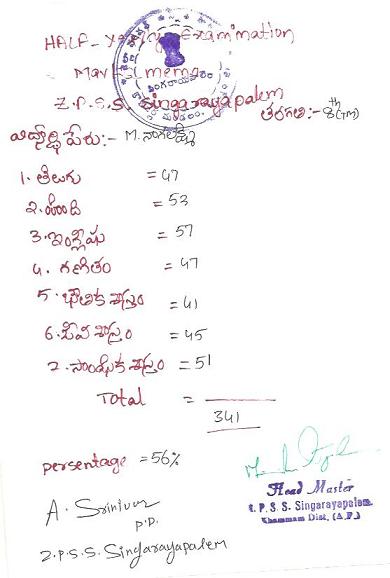 HALF-Yearly Examination
Marks memo
Z.P.S.S. Singarayapalem
తరగతి:- 8th (TM)
విద్యార్థి పేరు:- M.
1. తెలుగు = 47
2. హింది = 53
3. ఇంగ్లీషు = 57
4. గణితం = 47
5. భౌతిక శాస్త్రం = 41
6. జీవ శాస్త్రం = 45
7. సాంఘిక శాస్త్రం = 51
Total =
341
persentage = 56%
Head Master
Z. P. S. S. Singarayapalem.
Khammam Dist, (A.P.)
A. Srinivas
P.D.
Z.P.S.S. Singarayapalem